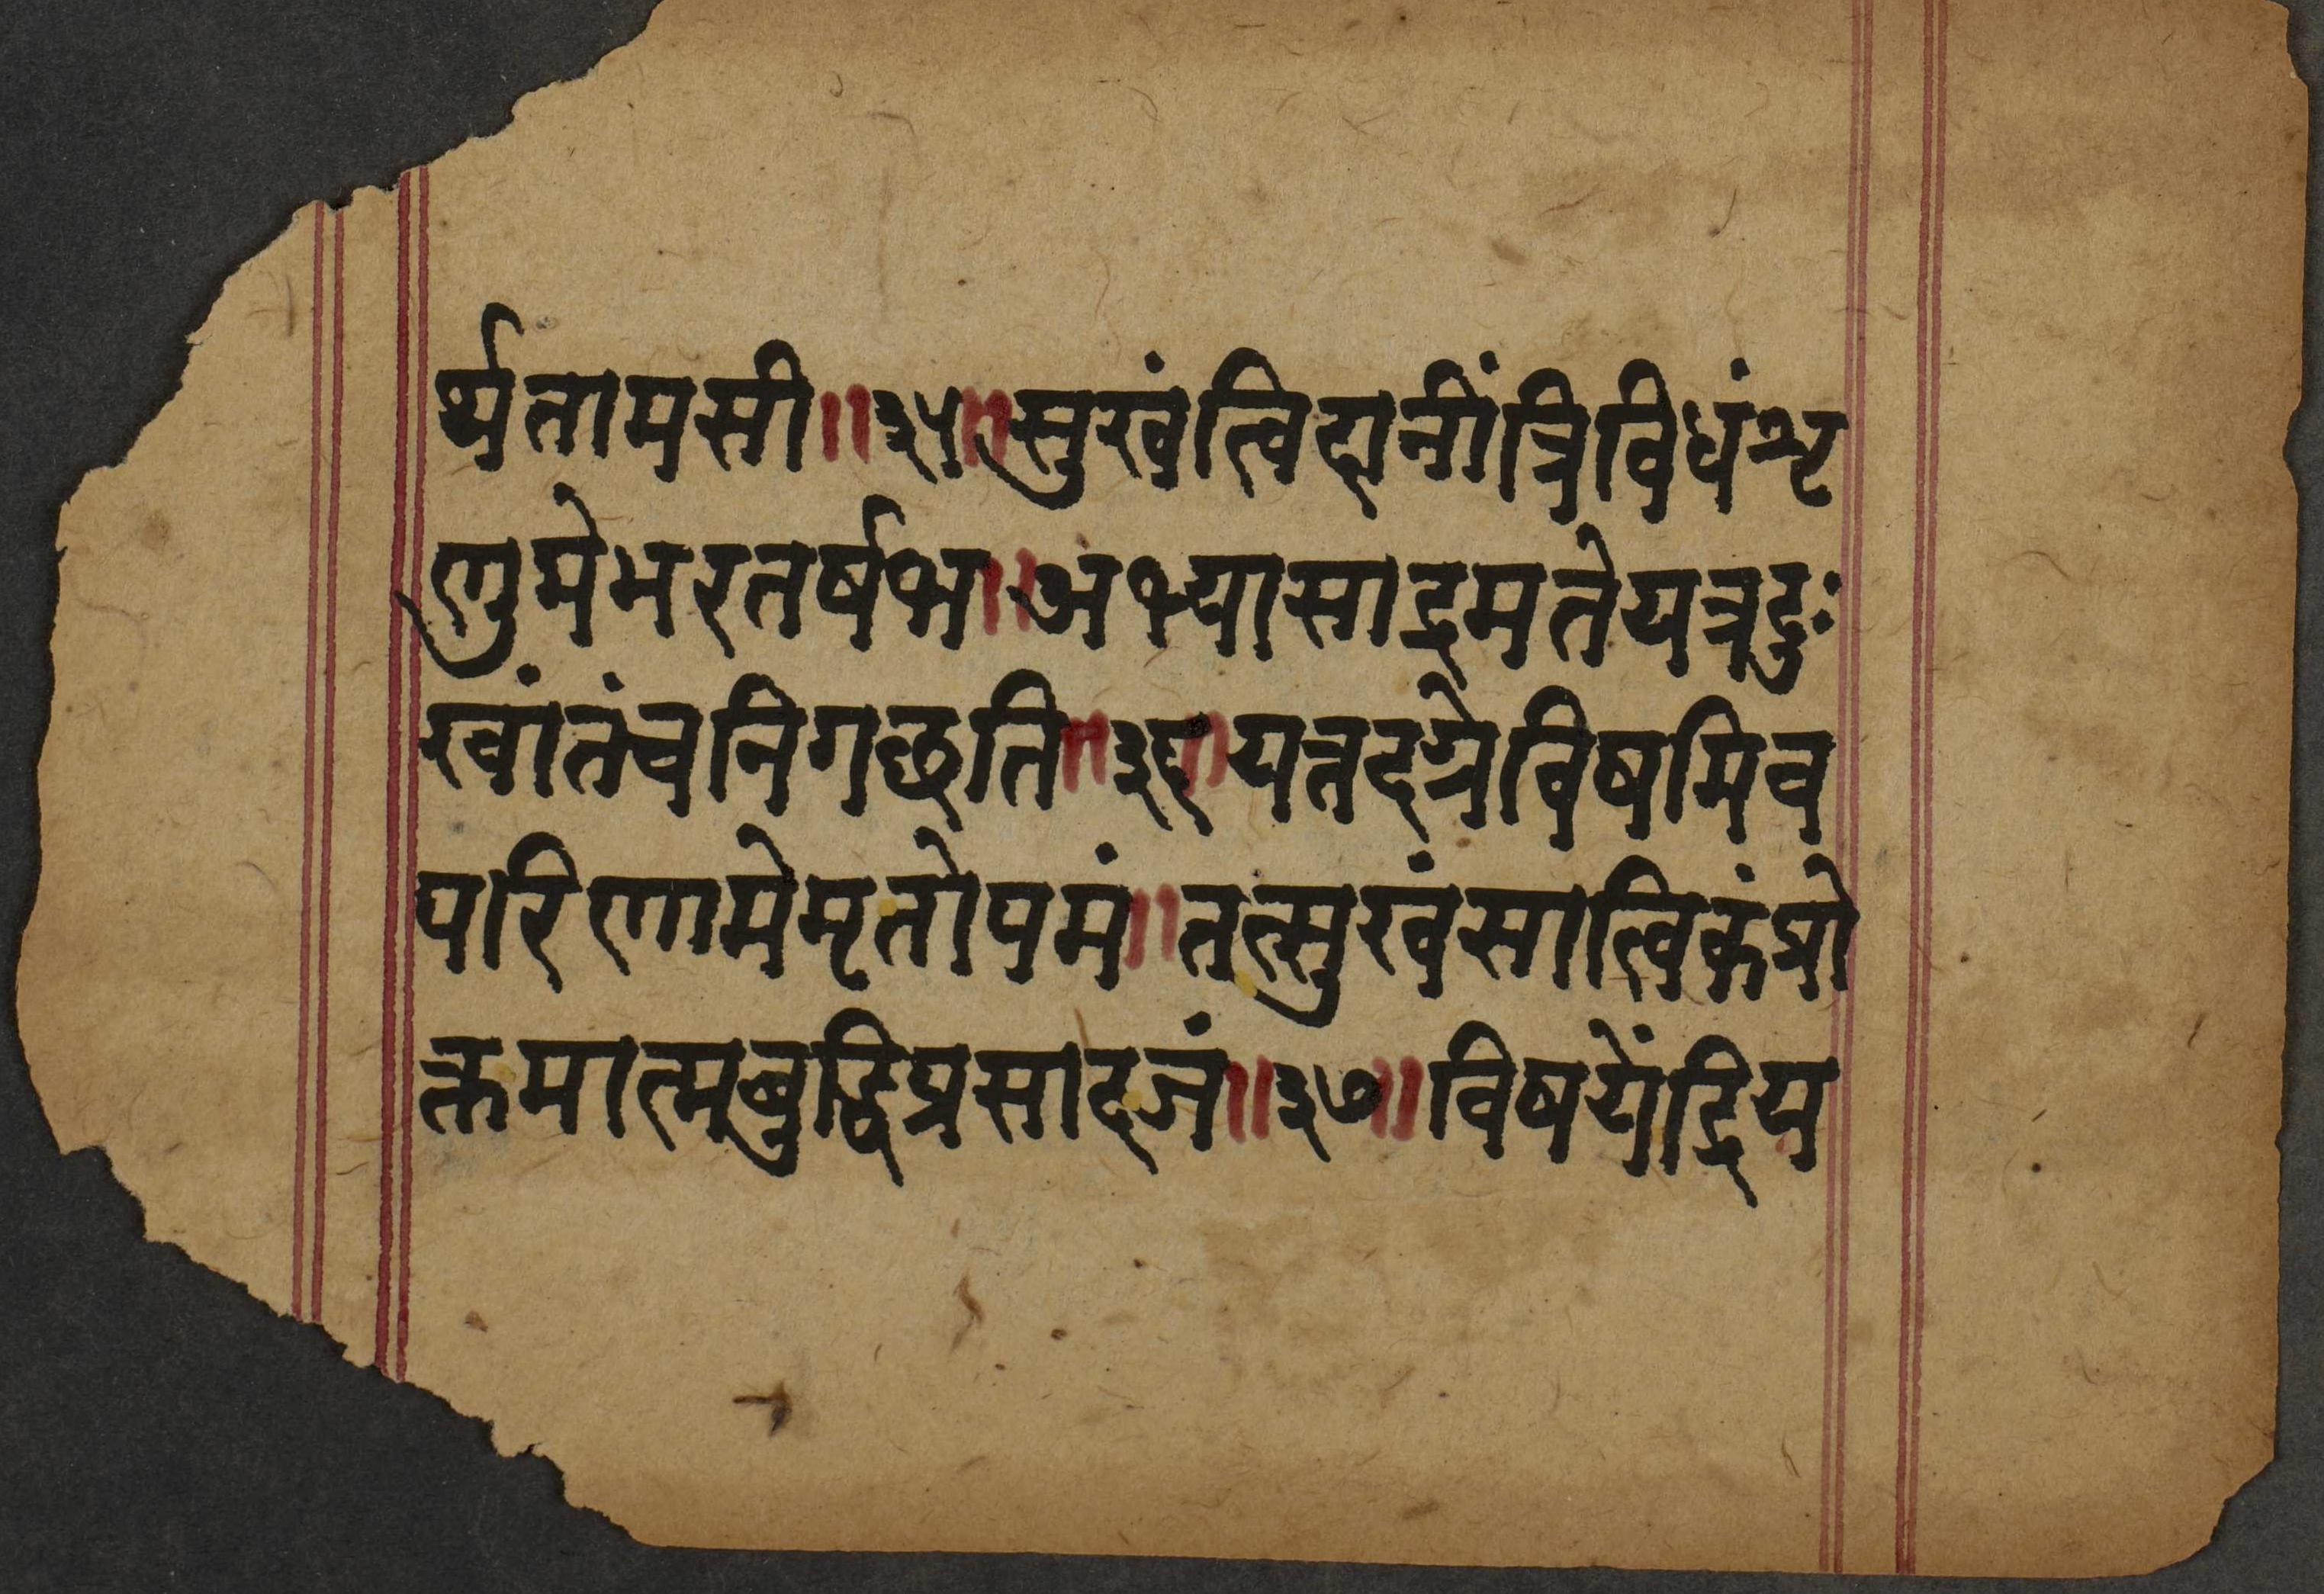 र्थतामसी॥३५॥सुखंत्विदानींत्रिविधंशृ
णुमेभरतर्षभ॥अभ्यासाद्रमतेयत्रदुः
खांतंचनिगछति॥३६॥यत्तदग्रेविषमिव
परिणामेमृतोपमं॥तत्सुखंसात्विकंप्रो
क्तमात्मबुद्धिप्रसादजं॥३७॥विषयेंद्रिय